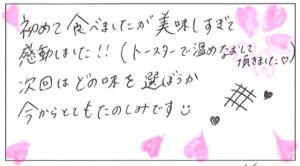 初めて食べましたが美味しすぎて
感動しました!!(トースターで温めなおして
頂きました♡)
次回はどの味を選ぼうか
今からとてもたのしみです